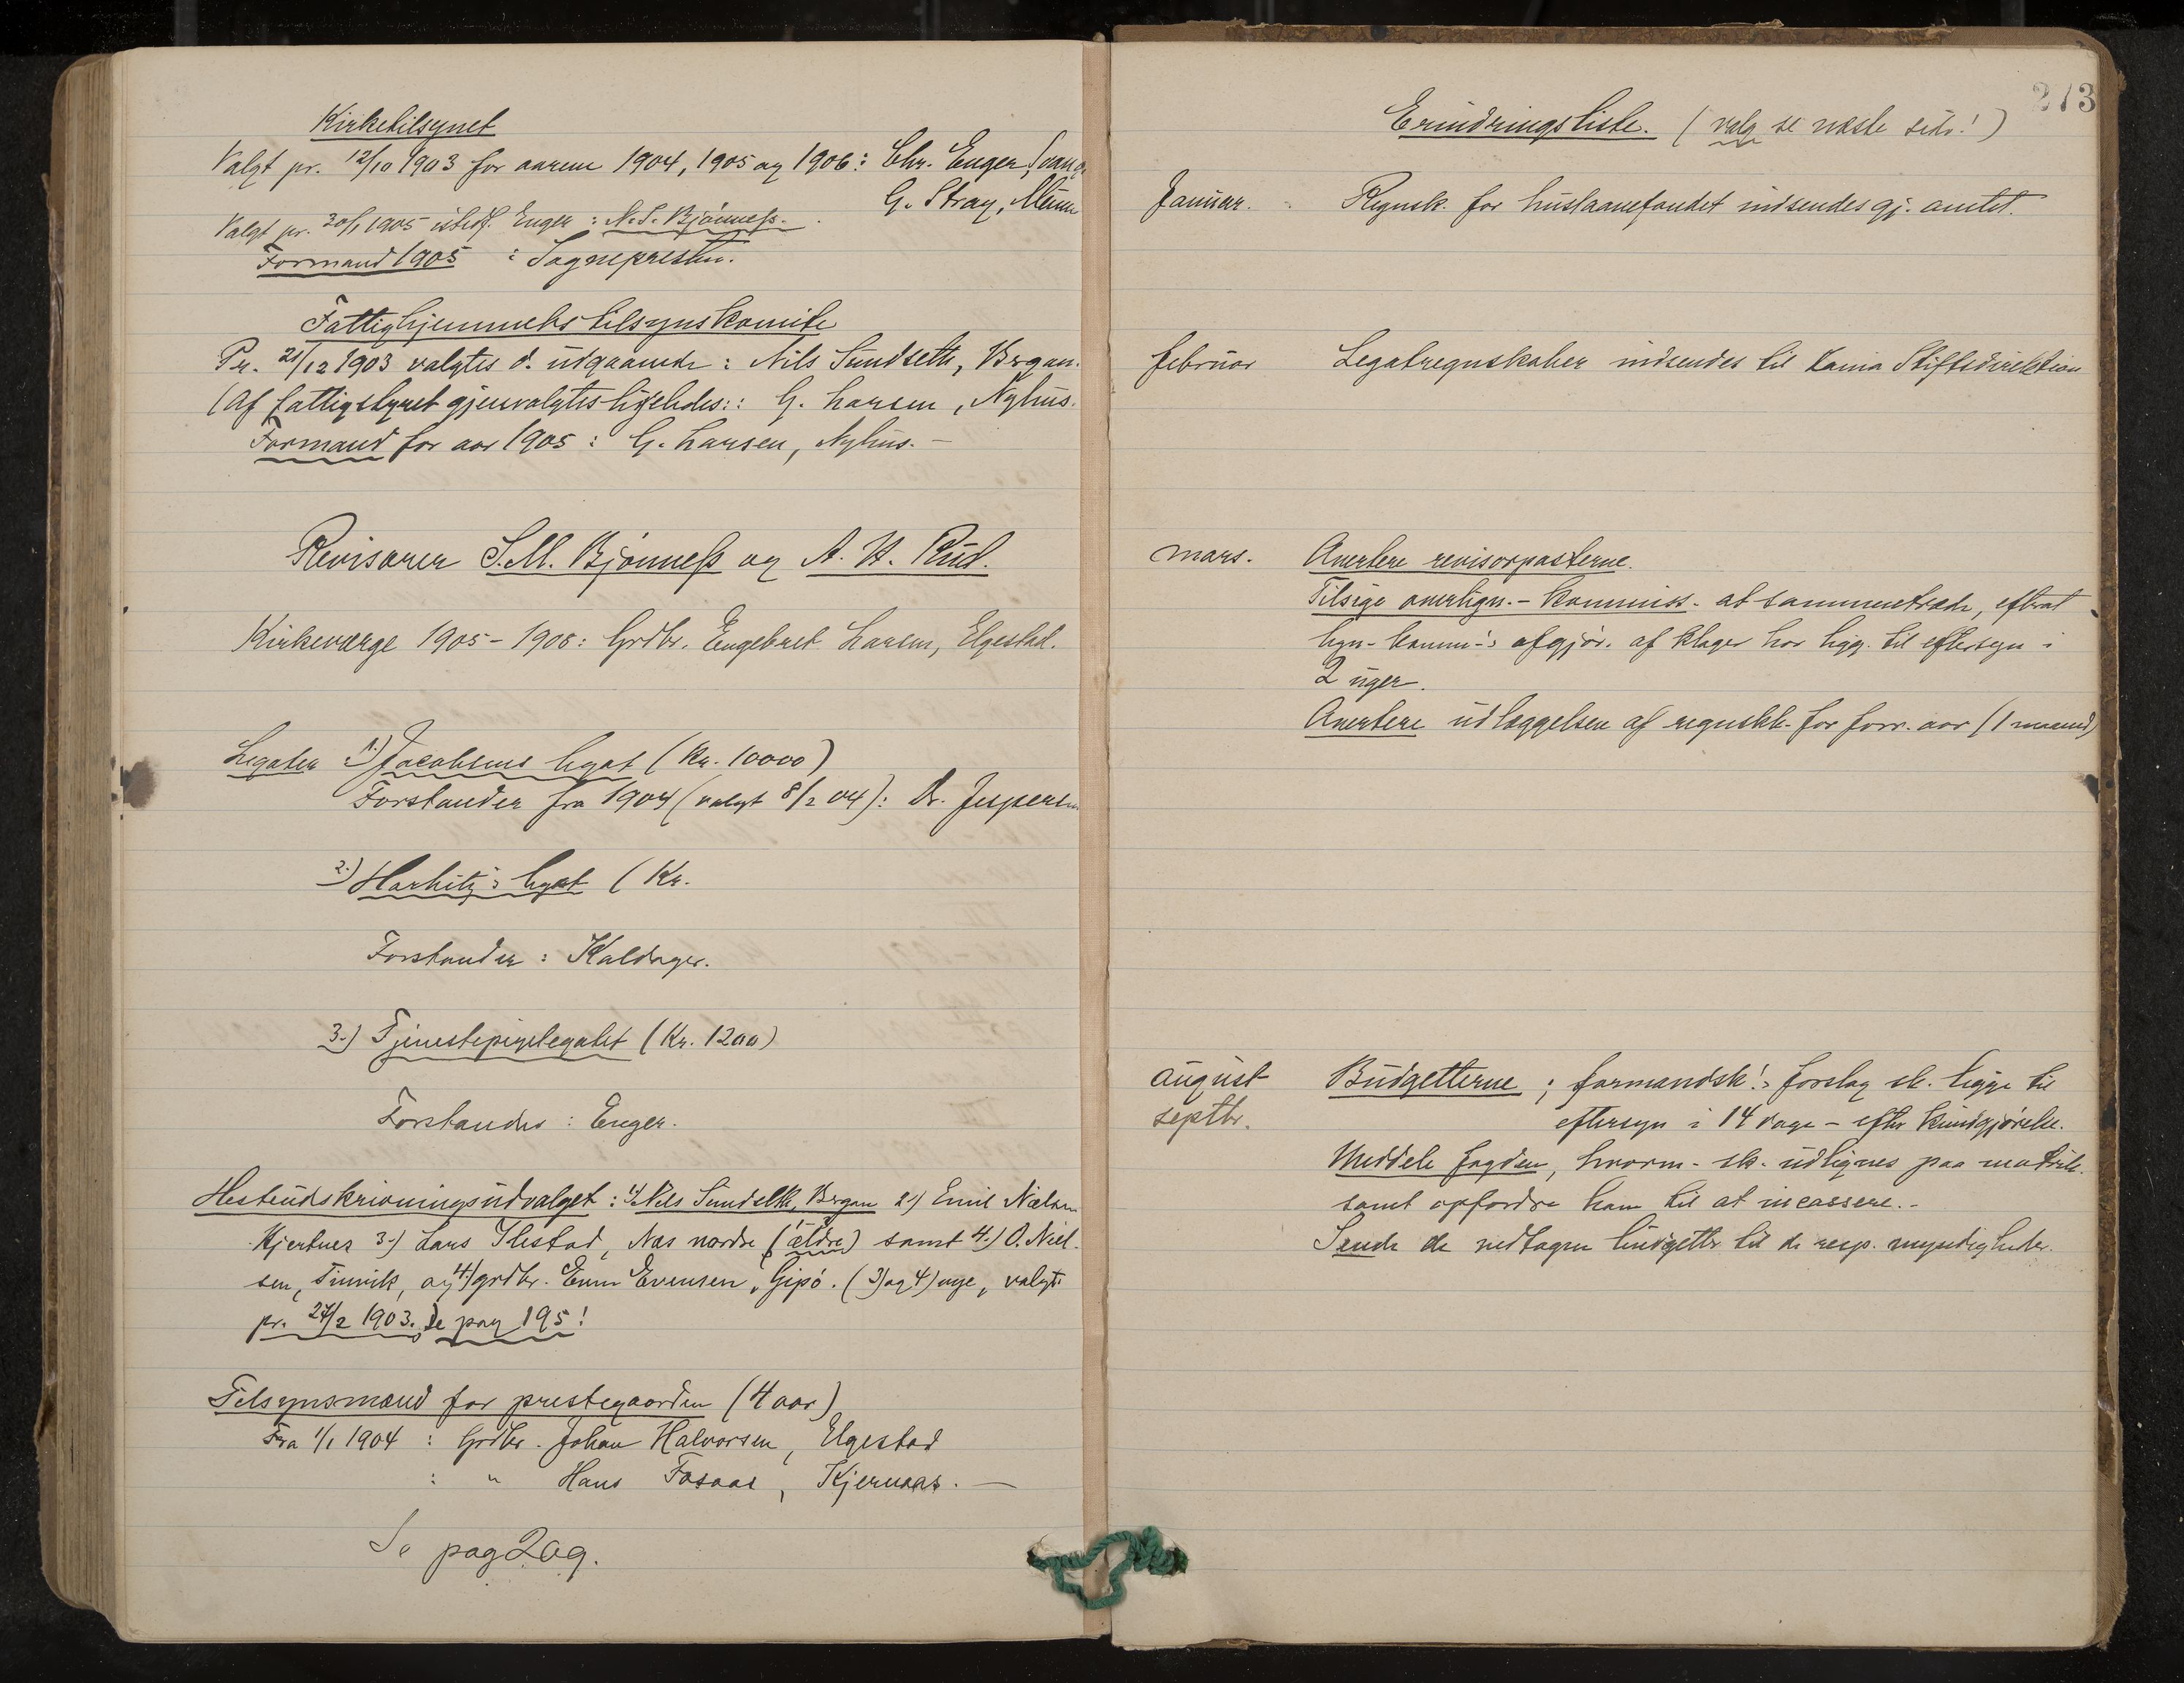 Kirketilsynet
Valgt pr. 12/10 1903 for aarene 1904, 1905 og 1906: Chr. Enger,
G. Stray,
Valgt pr. 30/1 1905 istedf. Enger: N. S. Bjönness.
Formand 1905 : Sognepresten.
Fattighjemmets tilsynskomite
Pr. 21/12 1903 valgtes d. udgaaende: Nils Sundseth, Brgan.
(Af fattigstyret gjenvalgtes ligeledes: G. Larsen, Nyhus.
Formand for aar 1905: G. Larsen, Nyhus. —
Revisorer S. M. Bjönness og A. H. Rud.
Kirkeværge 1905-1908: Grdbr. Engebret Larsen, Elgestad.
Legater 1.) Jacobsens legat (Kr. 10000)
Forstander fra 1904 (valgt 8/2 04): Dr. Jespersen
2.) Harbitz's legat (Kr.
Forstander: Kaldager.
3.) Tjenestepigelegatet (Kr. 1200)
Forstander: Enger.
Hesteudskrivningsudvalget: 1) Nils Sundseth, Brgan 2) Emil Nielsen
Kjernes 3.) Lars Ilestad, Næs nordre (ældre) samt 4.) O. Niel-
sen, Finvik, og 4) grdbr. Even Evensen, Gipö. (3) og 4) nye, valgt
pr. 27/2 1903. Se pag 195!
Tilsynsmænd for prestegaarden (4 aar)
Fra 1/1 1904 : Grdbr. Johan Halvorsen, Elgestad
: " Hans Fosaas, Kjernaas. —
Se pag 209.
273
Erindringsliste. (valg se næste side!)
Januar. Regnsk. for huslaanefondet indsendes gj. amtet.
februar Legatregnskaber indsendes til Kania Stiftsdirektion
mars. Avertere revisorposterne.
Tilsige overlign.-kommiss. at sammentræde, efterat
lign-komm-'s afgjör. af klager har ligg. til eftersyn i
2 uger.
Avertere udlæggelsen af regnskk. for forr. aar (1 maaned)
august Budgetterne; formandsk!s forslag sk. ligge til
septbr. eftersyn i 14 dage - efter kundgjörelse.
Meddele fogden, hvorm. sk. udlignes paa matrik.
samt opfordre ham til at incassere.-
Sende de vedtagne budgetter til de resp. myndigheder.